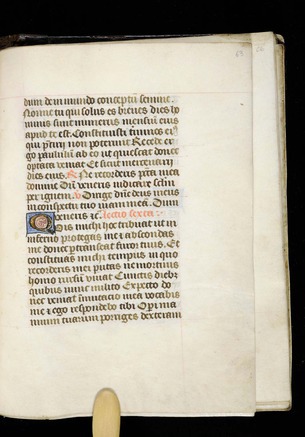 dum de inmundo conceptū semine.
Nonne tu qui solus es breues dies ho
minis sunt numerus mensiū eius
apud te est. Constituisti t̄minos ei9
qui p̄t̄iri non poterunt Recede er
go paululū ab eo ut quiescat donec
optata veniat Et sicut mercenarij
dies eius. R̄ Ne recorderis pc̄ta mea
domine Dū veneris iudicare sc̄lm
per ignem. V Dirige dn̄e deus meus
in conspectu tuo uiam meā. Dum
veneris ꝛc. lectio sexta.
Quis michi hoc tribuat ut in
inferno protegas me ⁊ abscondas
me donec ptranseat furor tuus. Et
constituas michi tempus in quo
recorderis mei putas ne mortuus
homo rursū viuat Cunctis dieb9
quibus nunc milito Expecto do
nec veniat īmutacio mea vocabis
me ⁊ ego respondebo tibi Operi ma
nuum tuarum porriges dexteram